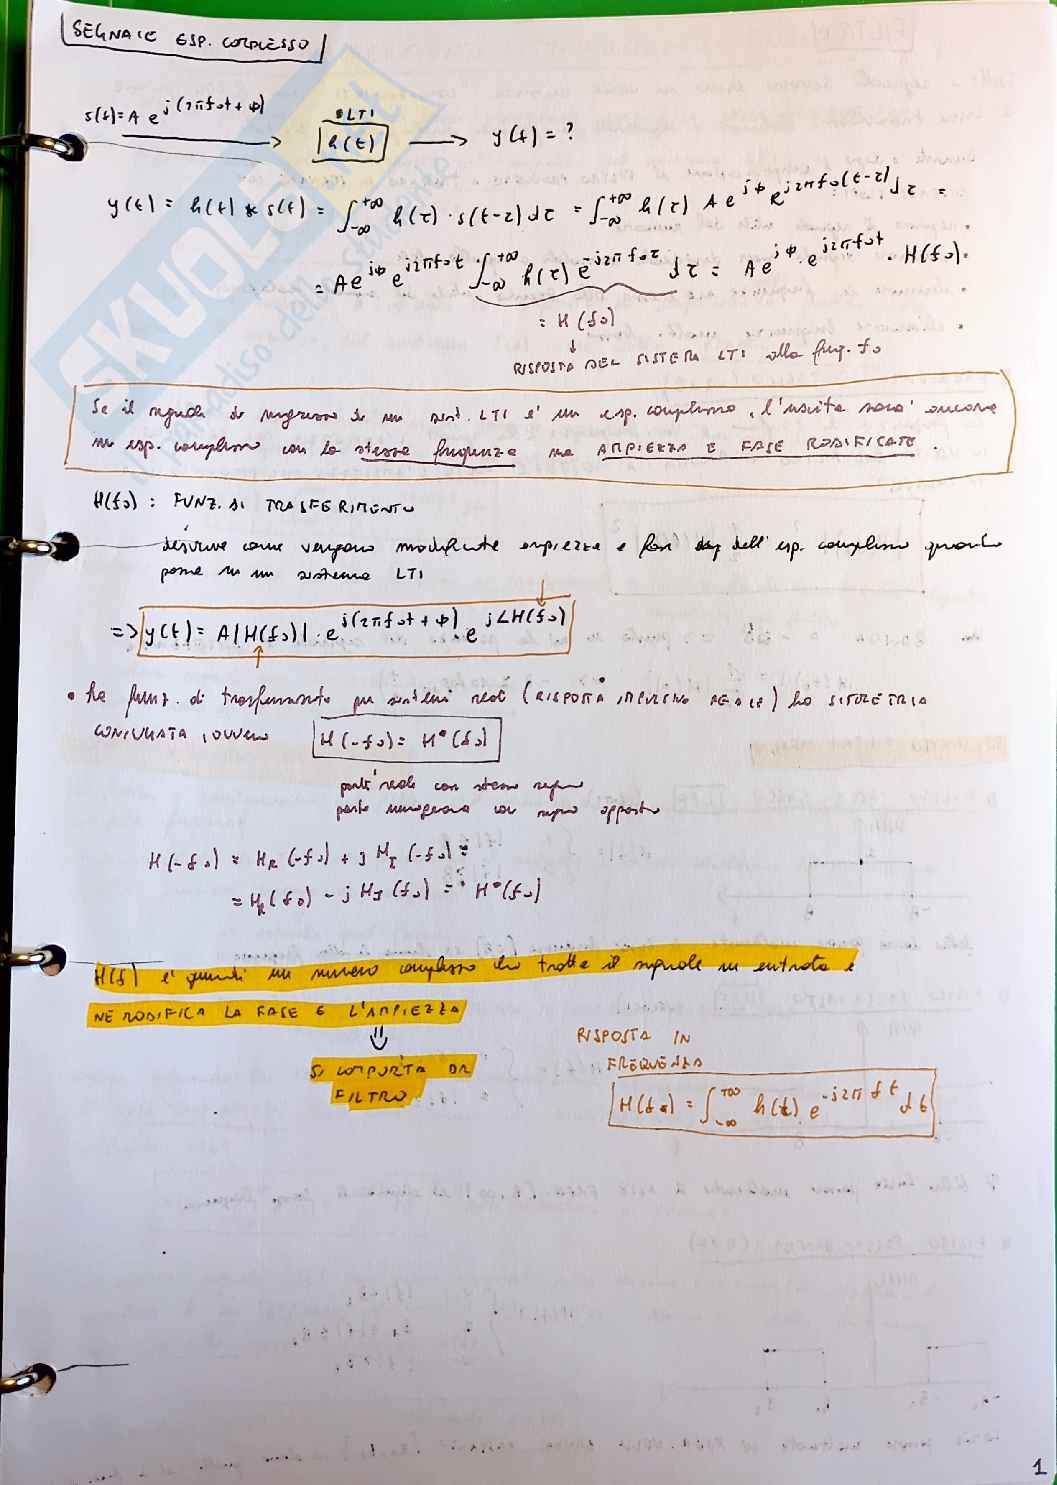 SEGNALE ESP. COMPLESSO
s(t)=A e^{j(2πf₀t+φ)} → SLTI h(t) → y(t)=?
y(t) = h(t) * s(t) = ∫_{-∞}^{+∞} h(τ)·s(t-τ)dτ = ∫_{-∞}^{+∞} h(τ) A e^{jφ} e^{j2πf₀(t-τ)} dτ =
= A e^{jφ} e^{j2πf₀t} ∫_{-∞}^{+∞} h(τ) e^{-j2πf₀τ} dτ = A e^{jφ}·e^{j2πf₀t}·H(f₀).
= H(f₀)
↓
RISPOSTA DEL SISTEMA LTI alla freq. f₀
Se il segnale di ingresso di un sist. LTI e' un esp. complesso, l'uscita sara' ancora
un esp. complesso con la stessa frequenza ma AMPIEZZA E FASE MODIFICATE.
H(f₀): FUNZ. DI TRASFERIMENTO
descrive come vengono modificate ampiezze e fasi dell'esp. complesso quando
passa in un sistema LTI
=> y(t)= A|H(f₀)|·e^{j(2πf₀t+φ)}·e^{j∠H(f₀)}
• La funz. di trasferimento per sistemi reali (RISPOSTA IMPULSIVA REALE) ha SIMMETRIA
CONIUGATA, ovvero H(-f₀)= H*(f₀)
parti reale con stesso segno
parte immaginaria con segno opposto
H(-f₀) = H_R(-f₀) + j H_I(-f₀) =
= H_R(f₀) - j H_I(f₀) = H*(f₀)
H(f) e' quindi un numero complesso che tratta il segnale in entrata e
NE MODIFICA LA FASE E L'AMPIEZZA
⇓
SI COMPORTA DA
FILTRO
RISPOSTA IN
FREQUENZA
H(f₀) = ∫_{-∞}^{+∞} h(t) e^{-j2πft} dt
1
SKUOLA.net
il paradiso dello studente